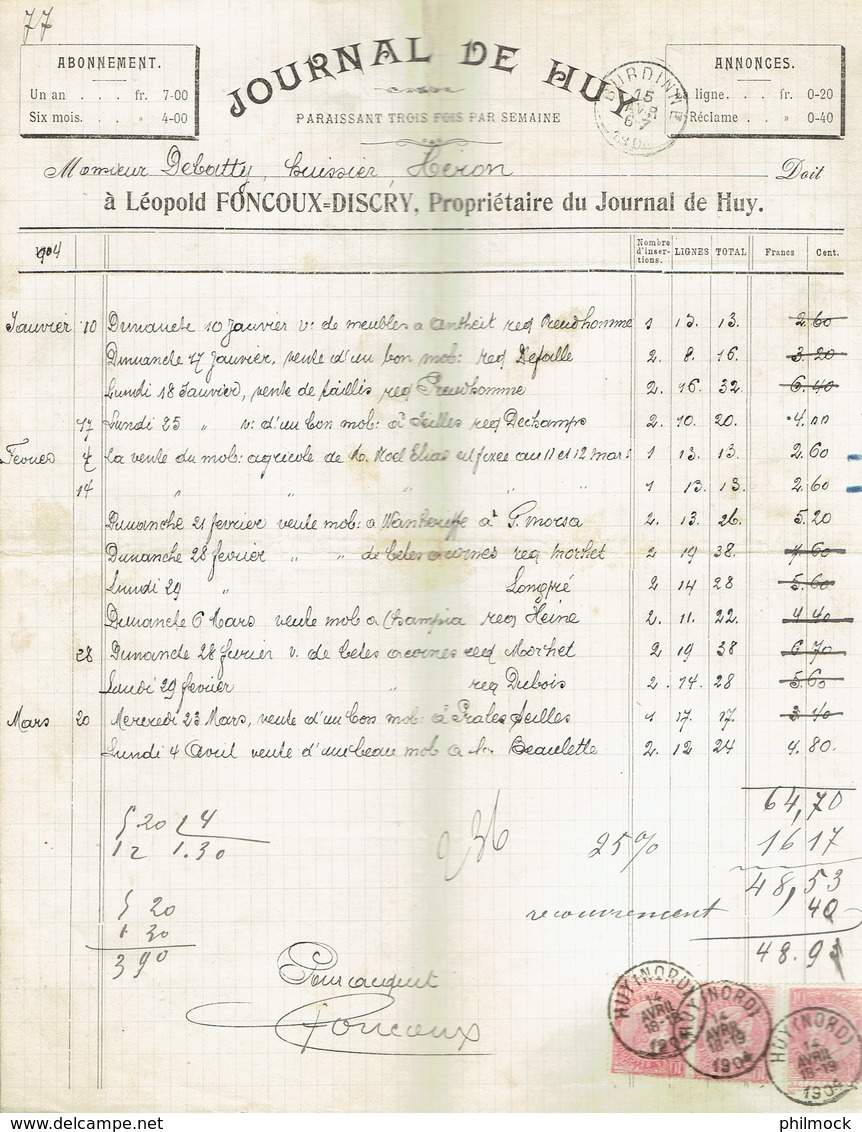 77
JOURNAL DE HUY
PARAISSANT TROIS FOIS PAR SEMAINE
ABONNEMENT.
Un an . . . fr. 7-00
Six mois. . . » 4-00
ANNONCES.
ligne. . . fr. 0-20
Réclame . . » 0-40
BURDINNE 15 AVR 6-7 1904
Monsieur Debatty, huissier, Heron Doit
à Léopold FONCOUX=DISCRY, Propriétaire du Journal de Huy.
1904 Nombre d'insertions. LIGNES TOTAL Francs Cent.
Janvier 10 Dimanche 10 Janvier v: de meubles a Antheit req Preudhomme 1 13. 13. 2.60
Dimanche 17 Janvier, vente d'un bon mob: req Defalle 2. 8. 16. 3.20
Lundi 18 Janvier, vente de taillis req Preudhomme 2. 16. 32. 6.40
17 Lundi 25 " v: d'un bon mob: à Seilles req Dechamps 2. 10. 20. 4.00
Fevrier 7 La vente du mob: agricole de M. Noel Elias est fixée au 11 et 12 mars 1 13. 13. 2.60
14 " " " " " 1 13. 13. 2.60
Dimanche 21 fevrier vente mob: a à 2. 13. 26. 5.20
Dimanche 28 fevrier " " de betes a cornes req Morhet 2 19 38. 7.60
Lundi 29 " Longrié 2 14 28 5.60
Dimanche 6 Mars vente mob a req Heine 2. 11. 22. 4.40
28 Dimanche 28 fevrier v. de betes a cornes req Morhet 2 19 38 6.70
Lundi 29 fevrier " req Dubois 2. 14. 28 5.60
Mars 20 Mercredi 23 Mars, vente d'un bon mob: à Seilles 1 17. 17. 3.40
Lundi 4 Avril vente d'un beau mob a 2. 12 24 4.80.
64,70
5 20 4
12 1.30
236
25% 16 17
48,53
recouvrement 40
48.93
5 20
1 30
3 90
Pour acquit
Foncoux
HUY (NORD) 14 AVRIL 18-19 1904
HUY (NORD) 14 AVRIL 18-19 1904
HUY (NORD) 14 AVRIL 18-19 1904
philmock